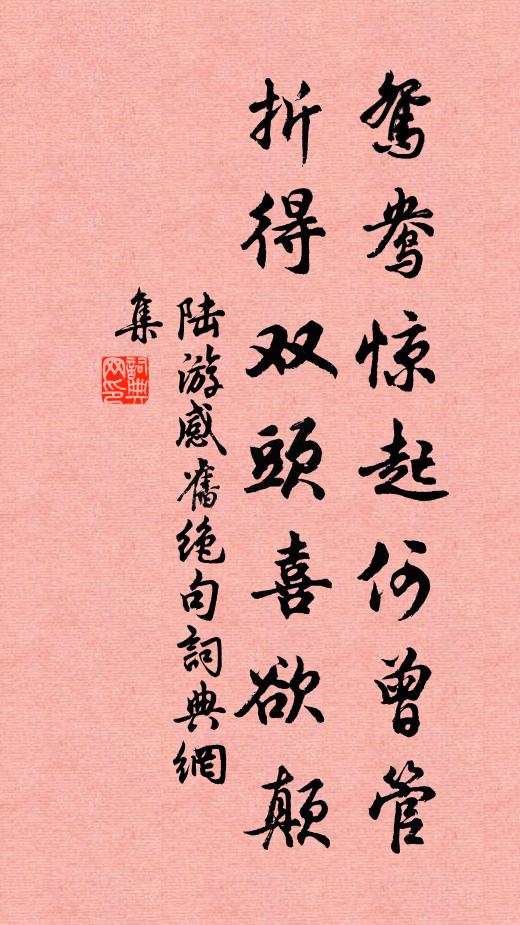 鸳鸯惊起何曾管
折得双頭喜欲颠
陆游感舊绝句詞典網
集
詞典网印